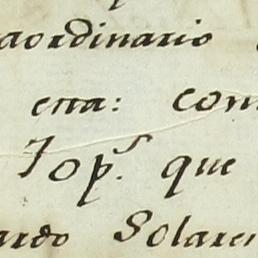 aordinario
etta: con
Jop.s que
ardo Solares